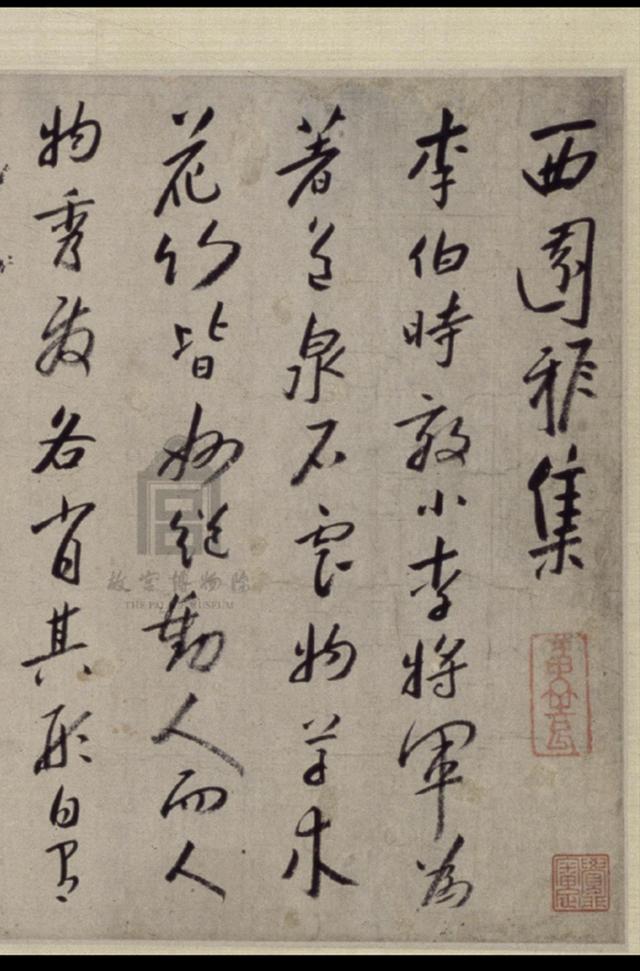 西園雅集
李伯時效小李将軍為
著色泉石雲物草木
花竹皆妙絶動人而人
物秀發各肖其形自有
故宫博物院
THE PALACE MUSEUM